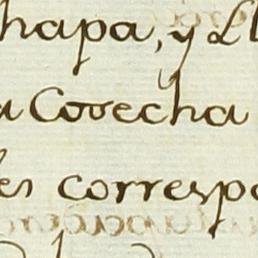 hapa, y Ll
a Covecha
es correspo